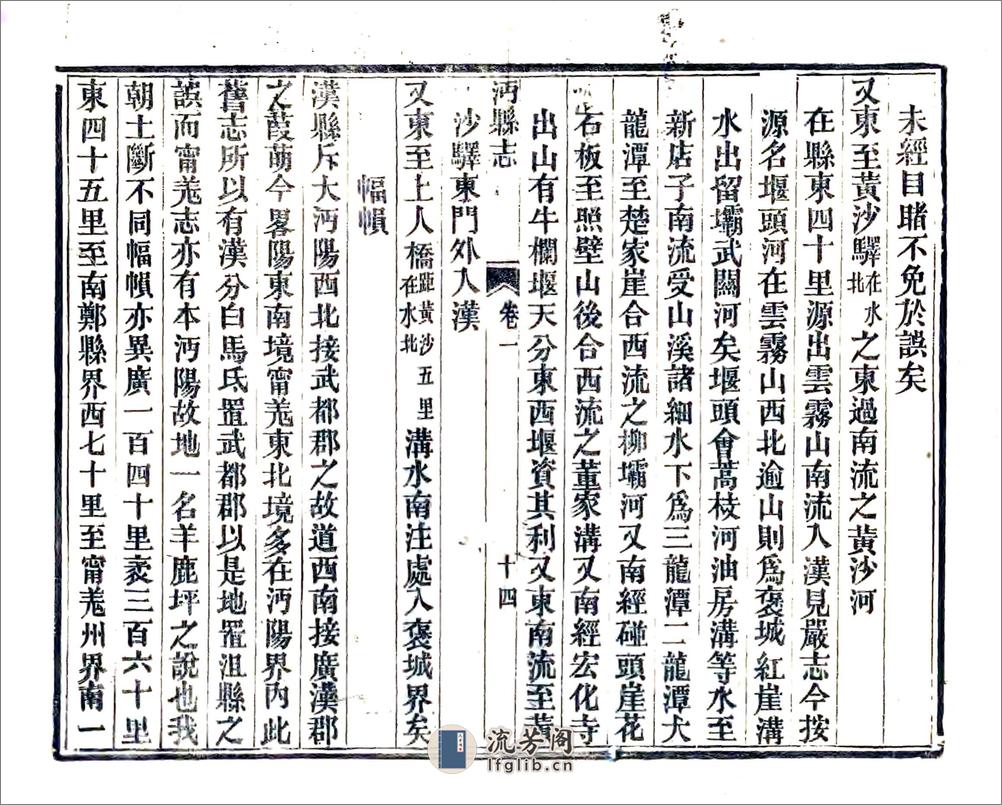 未經目睹不免於誤矣
又東至黃沙驛在水北之東過南流之黃沙河
在縣東四十里源出雲霧山南流入漢見嚴志今按
源名堰頭河在雲霧山西北逾山則為褒城紅崖溝
水出留壩武關河矣堰頭會蒿枝河油房溝等水至
新店子南流受山溪諸細水下為三龍潭二龍潭大
龍潭至楚家崖合西流之柳壩河又南經碰頭崖花
石板至照壁山後合西流之董家溝又南經宏化寺
出山有牛欄堰天分東西堰資其利又東南流至黃
沔縣志 卷一 十四
沙驛東門外入漢
又東至上人橋距黃沙五里在水北溝水南注處入褒城界矣
幅幀
漢縣斥大沔陽西北接武都郡之故道西南接廣漢郡
之葭萌今畧陽東南境甯羗東北境多在沔陽界內此
舊志所以有漢分白馬氐置武都郡以是地置沮縣之
誤而甯羗志亦有本沔陽故地一名羊鹿坪之說也我
朝土斷不同幅幀亦異廣一百四十里袤三百六十里
東四十五里至南鄭縣界西七十里至甯羗州界南一
流芳阁
lfglib.cn